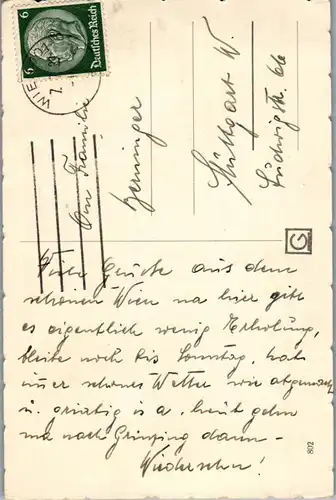 6 6
Deutsches Reich
WIEN
An Familie
Benninger
Stuttgart W.
Ludwigstr. 66
G
Viele Grüße aus dem
schönen Wien na hier gibt
es eigentlich wenig Erholung,
bleibe noch bis Sonntag, hab
immer schönes Wetter wie abgemacht
u. griabig is a, heut gehn
ma nach Grinzing dann -
Wiedersehn!
802